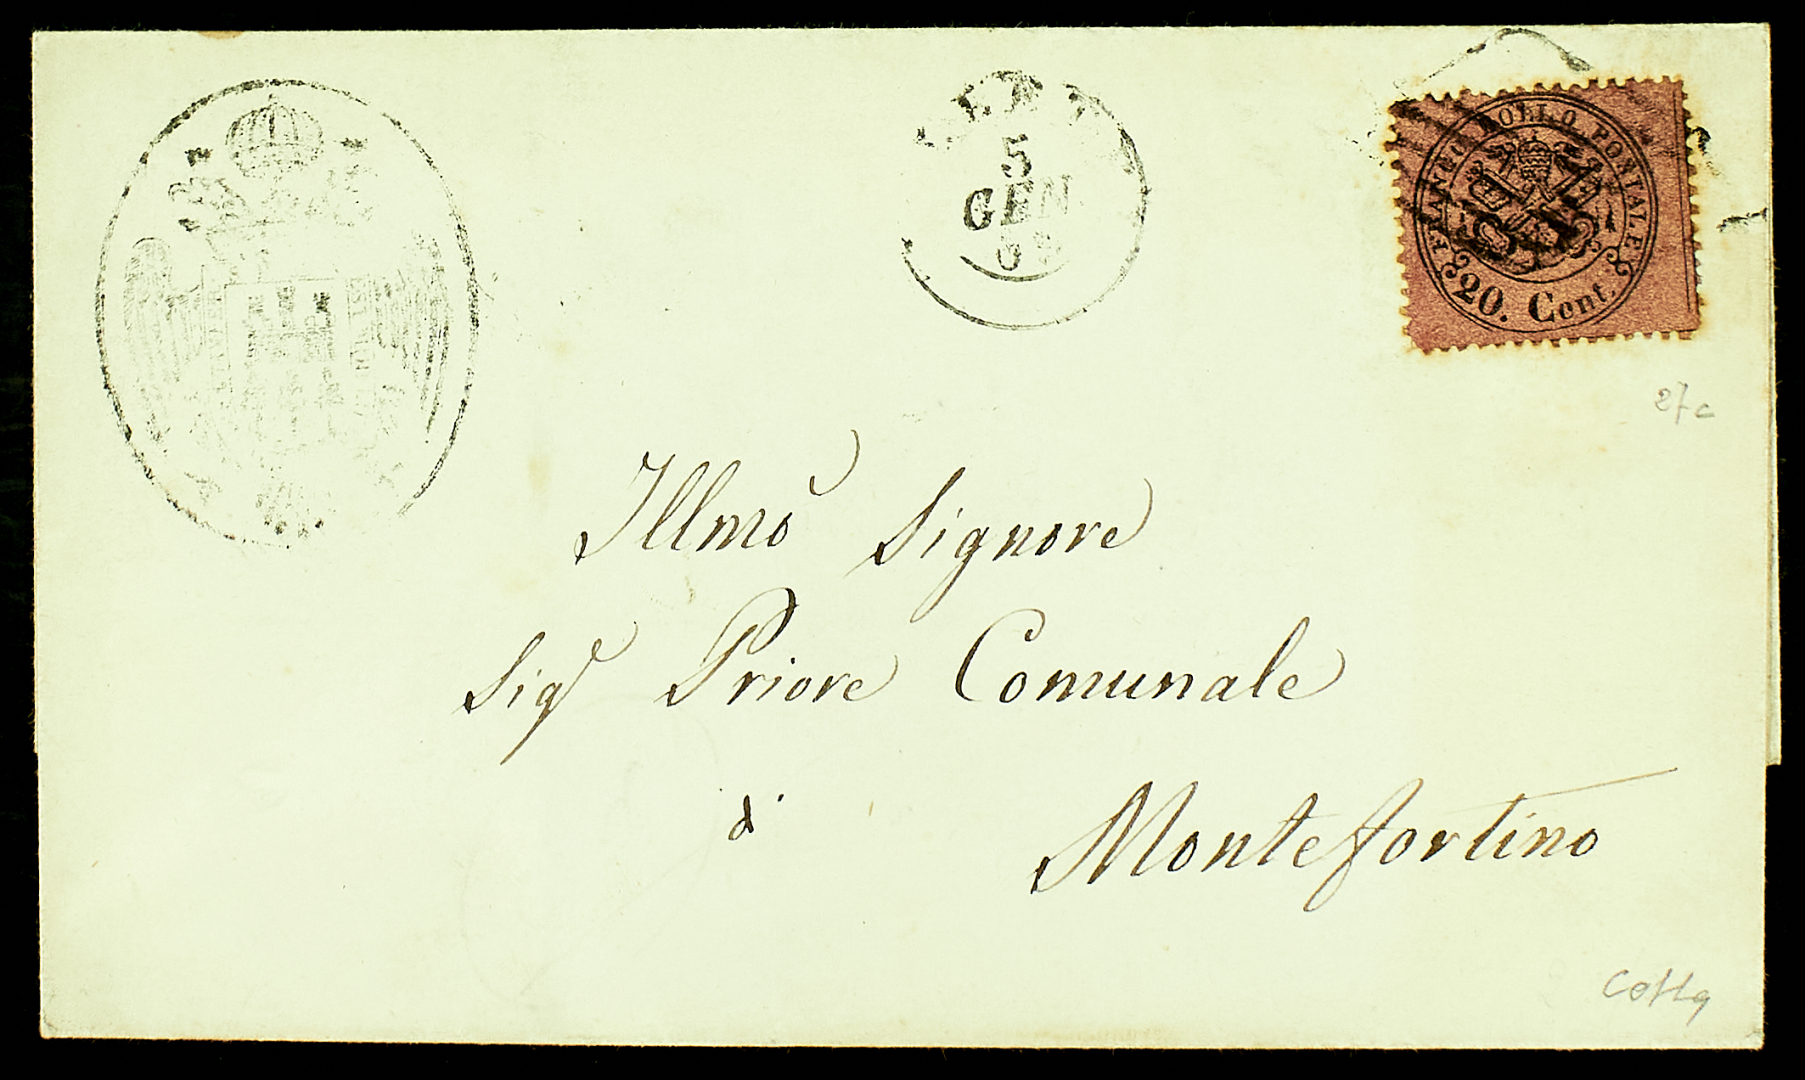 5
GEN
FRANCO BOLLO POSTALE
20. Cent.
27c
Illmo Signore
Sigr Priore Comunale
di
Montefortino